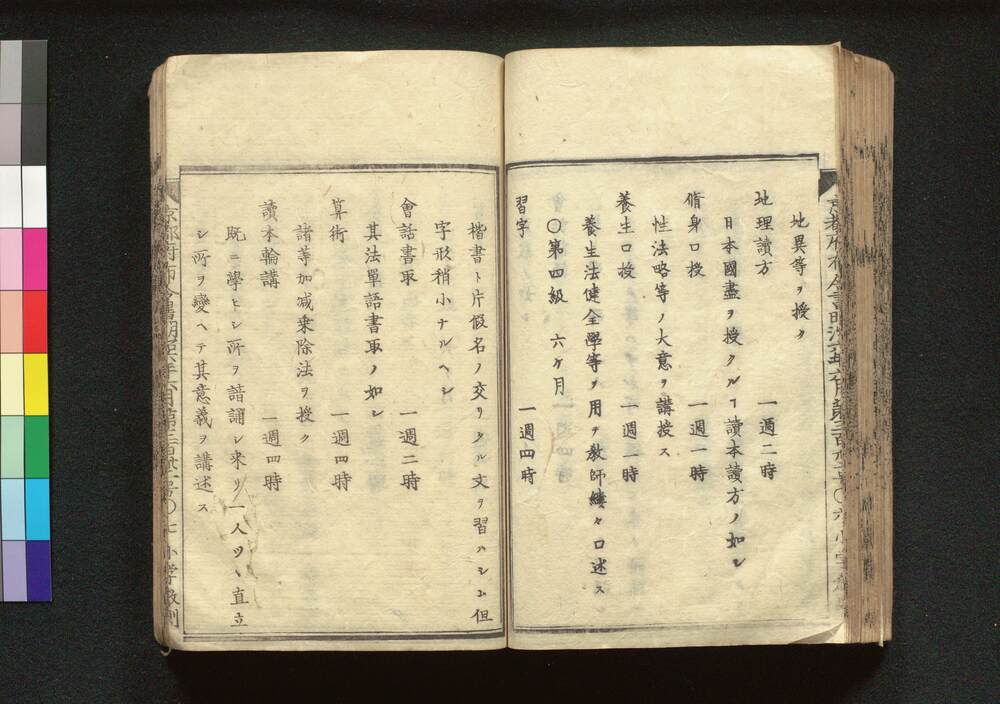 地異等ヲ授ク
地理讀方　一週二時
日本國盡ヲ授クルヿ讀本讀方ノ如シ
脩身口授　一週一時
性法略等ノ大意ヲ講授ス
養生口授　一週一時
養生法健全學等ヲ用ヲ教師縷々口述ス
〇第四級　六ケ月
習字　一週四時
楷書ト片假名ノ交リタル文ヲ習ハシム但
字形稍小ナルヘシ
會話書取　一週二時
其法單語書取ノ如シ
算術　一週四時
諸等加減乗除法ヲ授ク
讀本輪講　一週四時
既ニ學ヒシ所ヲ諳誦シ来リ一人ツヽ直立
シ所ヲ變ヘテ其意義ヲ講述ス